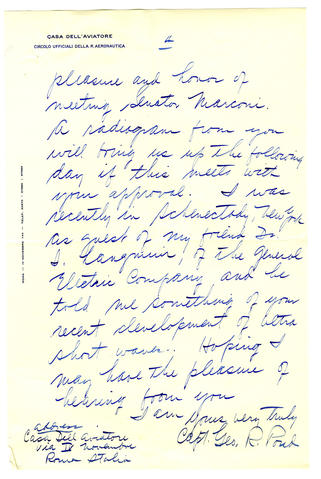 CASA DELL'AVIATORE
CIRCOLO UFFICIALI DELLA R. AERONAUTICA
4
pleasure and honor of
meeting Senator Marconi.
A radiogram from you
will bring us up the following
day if this meets with
your approval. I was
recently in Schenectady, New York
as guest of my friend Dr.
I. Langmuir, of the General
Electric Company and he
told me something of your
recent development of Ultra
short waves.. Hoping I
may have the pleasure of
hearing from you
I am yours very truly
Capt. Geo. R. Pond
address
Casa Dell Aviatore
Via IV Novembre
Roma Italia